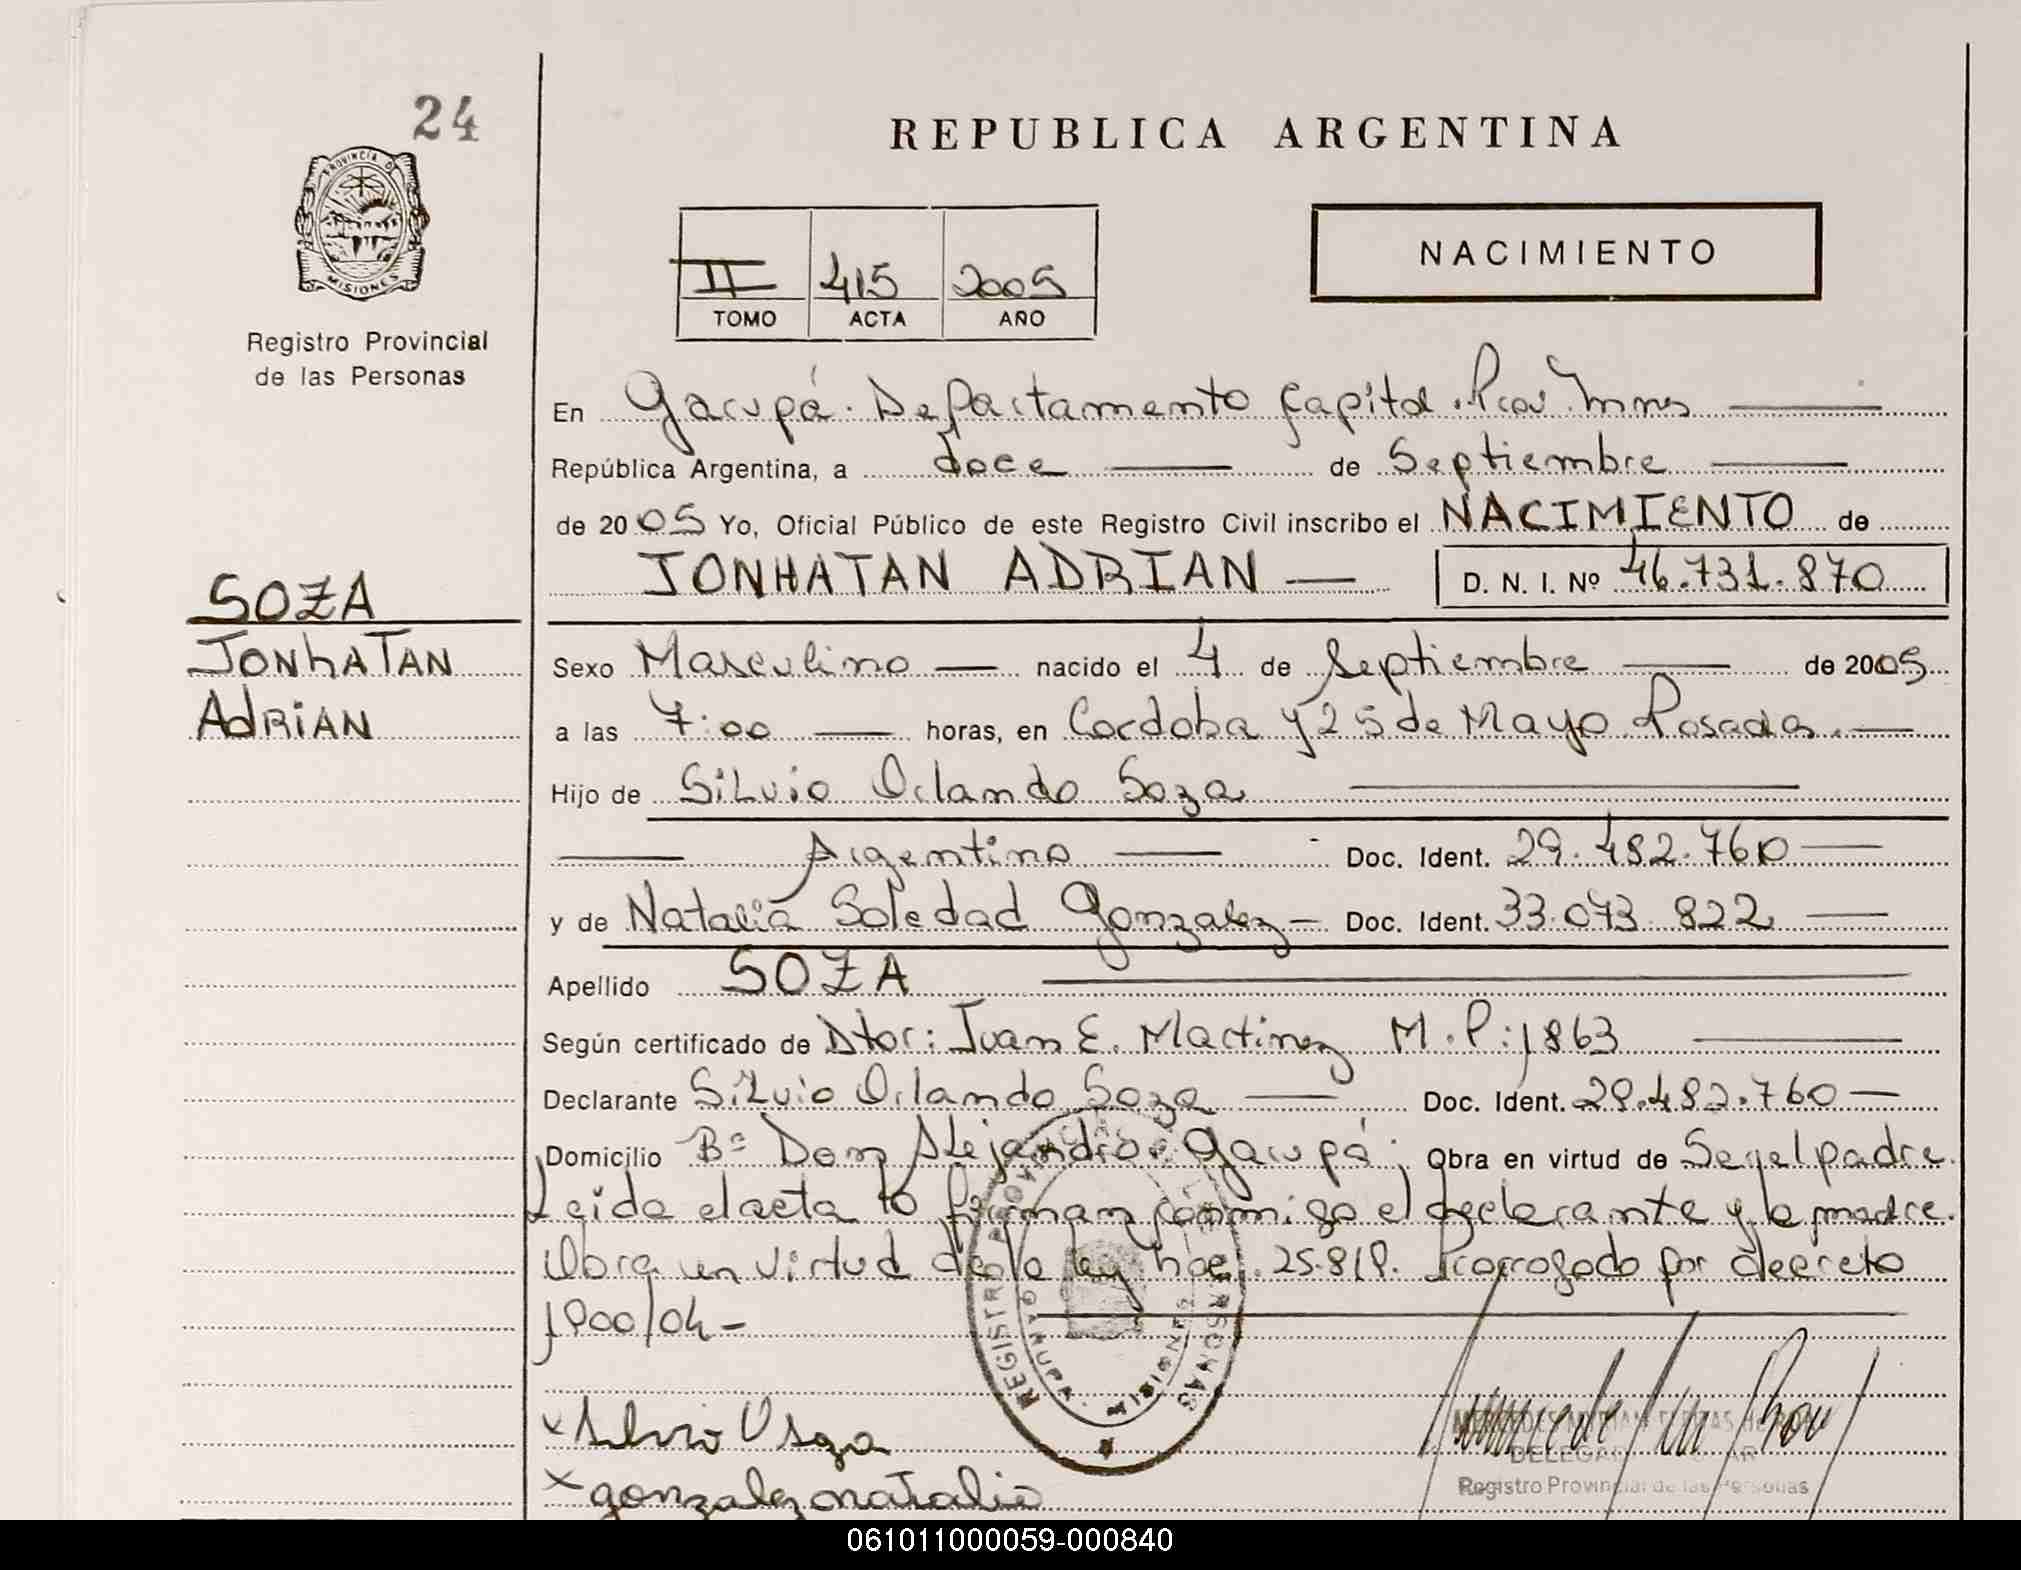 24
PROVINCIA DE
MISIONES
Registro Provincial
de las Personas
REPUBLICA ARGENTINA
II 415 2005
TOMO ACTA AÑO
NACIMIENTO
En Garupá. Departamento Capital. Prov. Mnes
República Argentina, a doce de Septiembre
de 2005 Yo, Oficial Público de este Registro Civil inscribo el NACIMIENTO de
JONHATAN ADRIAN D. N. I. Nº 46.731.870
SOZA
JONhATAN
AdRiAN
Sexo Masculino nacido el 4 de Septiembre de 2005
a las 7:00 horas, en Cordoba y 25 de Mayo Posadas.
Hijo de Silvio Orlando Soza
Argentino Doc. Ident. 29.482.760
y de Natalia Soledad Gonzalez Doc. Ident. 33.073.822
Apellido SOZA
Según certificado de Dtor: Juan E. Martinez M.P: 1863
Declarante Silvio Orlando Soza Doc. Ident. 29.482.760
Domicilio Bº Don Alejandro. Garupá. Obra en virtud de Ser el padre.
Leida el acta la firman conmigo el declarante y la madre.
Obra en virtud de la ley 25.819. Prorrogado por decreto
1900/04-
REGISTRO PERSONAS
MISIONES
x Silvio O Soza
x gonzalez natalia
Registro Provincial de las Personas
061011000059-000840